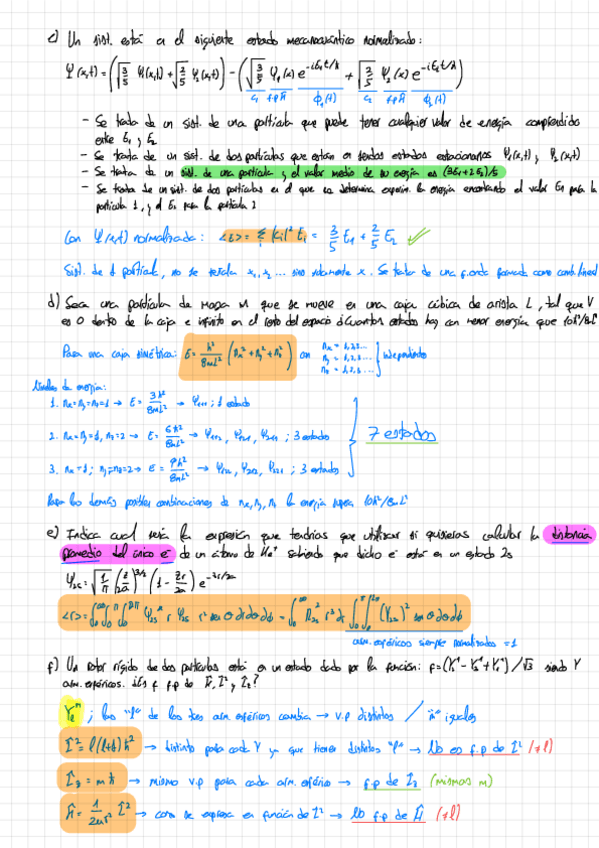 c) Un sist. está en el siguiente estado mecanocuántico normalizado:
Ψ(x,t) = (√3/5 Ψ₁(x,t) + √2/5 Ψ₂(x,t)) - (√3/5 Ψ₁(x) e^(-iE₁t/ħ) + √2/5 Ψ₂(x) e^(-iE₂t/ħ))
c₁ f.p Ĥ ϕ₁(t) c₂ f.p Ĥ ϕ₂(t)
- Se trata de un sist. de una partícula que puede tener cualquier valor de energía comprendido
entre E₁ y E₂
- Se trata de un sist. de dos partículas que están en sendos estados estacionarios Ψ₁(x,t) y Ψ₂(x,t)
- Se trata de un sist. de una partícula y el valor medio de su energía es (3E₁+2E₂)/5
- Se trata de un sist. de dos partículas en el que se determina experim. la energía encontrando el valor E₁ para la
partícula 1, y el E₂ para la partícula 2
Con Ψ(x,t) normalizada: <E> = Σ |cᵢ|² Eᵢ = 3/5 E₁ + 2/5 E₂ ✓
Sist. de 1 partícula, no se detalla x₁, x₂ ... sino solamente x. Se trata de una f. onda formada como comb. lineal
d) Sea una partícula de masa m que se mueve en una caja cúbica de arista L, tal que V
es 0 dentro de la caja e infinito en el resto del espacio ¿Cuántos estados hay con menor energía que 10h²/8mL²
Para una caja simétrica: E = h²/8mL² (nx² + ny² + nz²) con nx = 1,2,3... ny = 1,2,3... nz = 1,2,3... independientes
Niveles de energía:
1. nx=ny=nz=1 → E = 3h²/8mL² → Ψ₁₁₁ ; 1 estado
2. nx=ny=1, nz=2 → E = 6h²/8mL² → Ψ₁₁₂, Ψ₁₂₁, Ψ₂₁₁ ; 3 estados
7 estados
3. nx=1; ny=nz=2 → E = 9h²/8mL² → Ψ₁₂₂, Ψ₂₁₂, Ψ₂₂₁ ; 3 estados
Para las demás posibles combinaciones de nx, ny, nz la energía supera 10h²/8mL²
e) Indica cual sería la expresión que tendrías que utilizar si quisieras calcular la distancia
promedio del único e⁻ de un átomo de He⁺ sabiendo que dicho e⁻ está en un estado 2s
Ψ₂s = √1/π (Z/2a)^(3/2) (1 - Zr/2a) e^(-Zr/2a)
<r> = ∫₀^∞ ∫₀^π ∫₀^2π Ψ₂s* r Ψ₂s r² sen θ dr dθ dϕ = ∫₀^∞ R₂s² r³ dr ∫₀^π ∫₀^2π (Y₂s)² sen θ dθ dϕ
arm. esféricos siempre normalizados = 1
f) Un rotor rígido de dos partículas está en un estado dado por la función: f = (Y₁¹ - Y₂¹ + Y₃¹) / √3 siendo Y
arm. esféricos. ¿Es f f.p de Ĥ, L̂² y L̂z?
Yₗᵐ ; los "l" de los tres arm. esféricos cambia → v.p distintos / "m" iguales
L̂² = l(l+1)ħ² → distinto para cada Y ya que tienen distintos "l" → No es f.p de L̂² (≠l)
L̂z = mħ → mismo v.p para cada arm. esférico → f.p de L̂z (mismos m)
Ĥ = 1/2μr² L̂² → como se expresa en función de L² → No f.p de Ĥ (≠l)